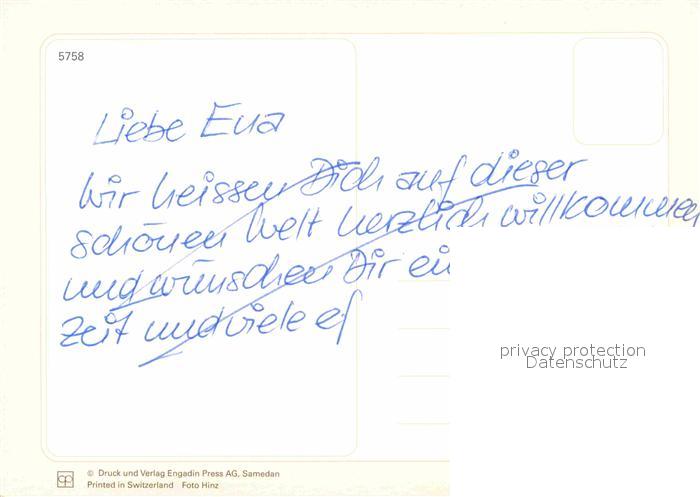 5758
Liebe Eva
Wir heissen Dich auf dieser
schönen Welt herzlich willkommen
und wünschen Dir
Zeit und viele
privacy protection
Datenschutz
© Druck und Verlag Engadin Press AG, Samedan
Printed in Switzerland Foto Hinz